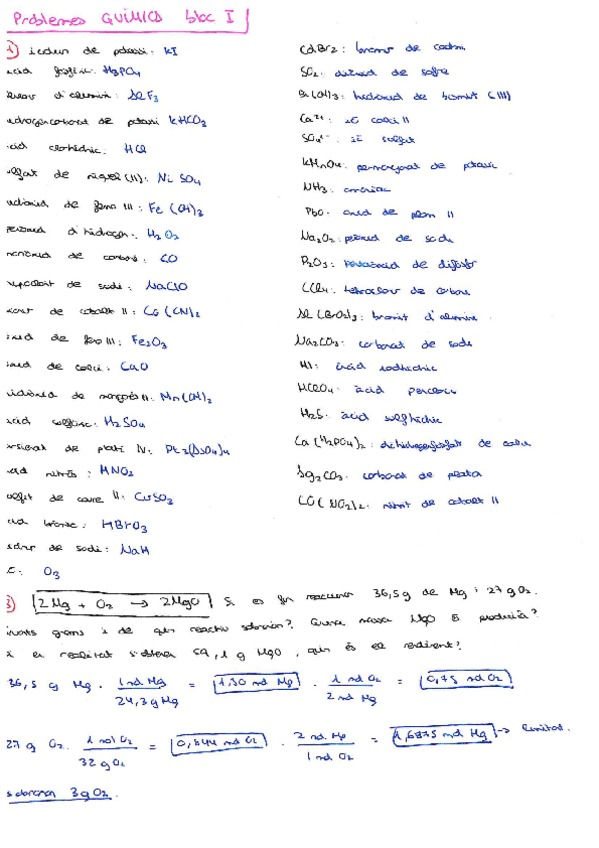 Problemes QUÍMICA bloc I
1) iodur de potassi: KI
àcid fosfòric: H3PO4
fluorur d'alumini: AlF3
hidrogencarbonat de potassi KHCO3
àcid clorhídric: HCl
sulfat de níquel (II): NiSO4
hidròxid de ferro III: Fe(OH)3
peròxid d'hidrogen: H2O2
monòxid de carboni: CO
hipoclorit de sodi: NaClO
cianur de cobalt II: Co(CN)2
òxid de ferro III: Fe2O3
òxid de calci: CaO
hidròxid de manganès II: Mn(OH)2
àcid sulfúric: H2SO4
arseniat de platí IV: Pt3(AsO4)4
àcid nitrós: HNO2
sulfit de coure II: CuSO3
àcid bròmic: HBrO3
hidrur de sodi: NaH
O3
CdBr2: bromur de cadmi
SO2: diòxid de sofre
Bi(OH)3: hidròxid de bismut (III)
Ca2+: ió calci II
SO42-: ió sulfat
KMnO4: permanganat de potassi
NH3: amoníac
PbO: òxid de plom II
Na2O2: peròxid de sodi
de difòsfor
CCl4: tetraclorur de carboni
Al(BrO2)3: bromit d'alumini
Na2CO3: carbonat de sodi
HI: àcid iodhídric
HClO4: àcid perclòric
H2S: àcid sulfhídric
Ca(H2PO4)2: dihidrogenfosfat de calci
Ag2CO3: carbonat de plata
CO(NO2)2: nitrit de cobalt II
3) 2Mg + O2 → 2MgO Si es fan reaccionar 36,5g de Mg i 27g O2.
quants grams i de quin reactiu sobraran? Quina massa MgO es produirà?
Si en realitat s'obtenen 59,1 g MgO, quin és el rendiment?
36,5 g Mg · 1 mol Mg / 24,3 g Mg = 1,50 mol Mg · 1 mol O2 / 2 mol Mg = 0,75 mol O2
27 g O2 · 1 mol O2 / 32 g O2 = 0,844 mol O2 · 2 mol Mg / 1 mol O2 = 1,6875 mol Mg → limitat.
sobraran 3g O2.